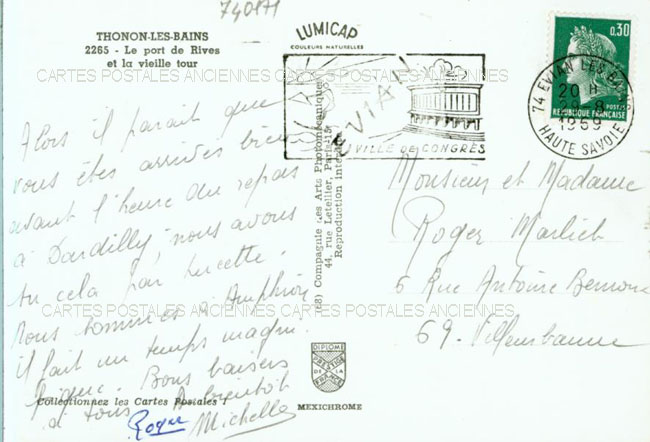 740171
THONON-LES-BAINS
2265 - Le port de Rives
et la vieille tour
LUMICAP
COULEURS NATURELLES
EVIAN
VILLE DE CONGRÈS
0,30
POSTES
REPUBLIQUE FRANÇAISE
74 EVIAN LES BAINS
20 H
28-8
1969
HAUTE SAVOIE
CARTES POSTALES ANCIENNES CARTES POSTALES ANCIENNES
Alors il parait que
vous êtes arrivés bien
avant l'heure du repas
à Dardilly, nous avons
su cela par Lucette.
Nous sommes à Amphion
il fait un temps magni-
fique. Bons baisers
à tous. A bientôt
Roger Michelle
(c3) Compagnie des Arts Photomécaniques
44, rue Letellier, Paris-15
Reproduction interdite
Monsieur et Madame
Roger Marlich
6 Rue Antoine
69. Villeurbanne
CARTES POSTALES ANCIENNES CARTES POSTALES ANCIENNES
DIPLOME
PRESTIGE
DE LA
FRANCE
MEXICHROME
Collectionnez les Cartes Postales !